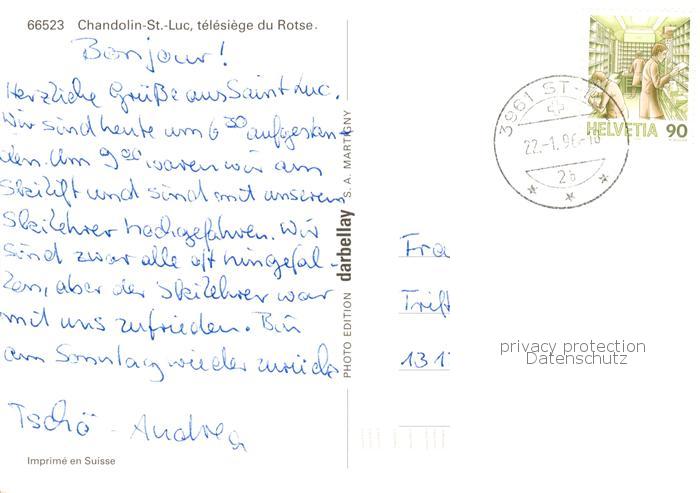 66523 Chandolin-St.-Luc, télésiège du Rotse.
Bonjour!
Herzliche Grüße aus Saint Luc.
Wir sind heute um 6 30 aufgestan-
den. Um 9 00 waren wir am
Skilift und sind mit unserem
Skilehrer hochgefahren. Wir
sind zwar alle oft hingefal-
len, aber der Skilehrer war
mit uns zufrieden. Bin
am Sonntag wieder zurück.
Tschö - Andrea
Imprimé en Suisse
PHOTO EDITION darbellay S.A. MARTIGNY
3961 ST-L
22.-1.96-18
2b
HELVETIA 90
Fra
Trift
131
privacy protection
Datenschutz